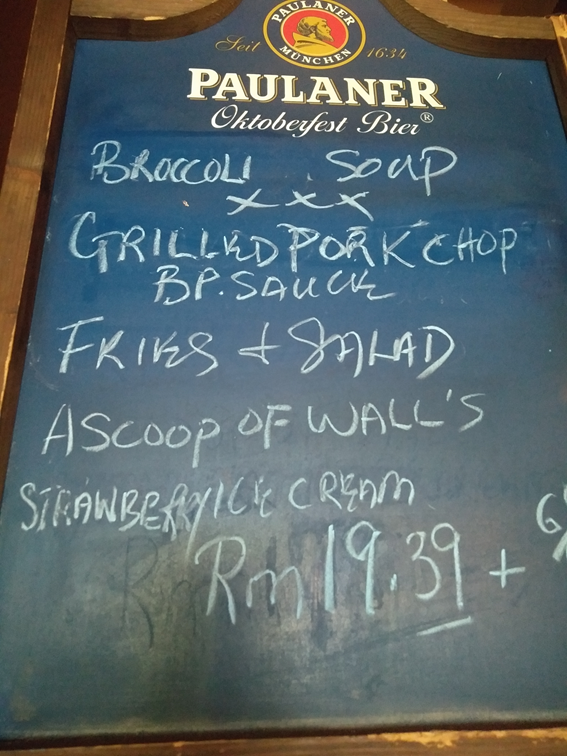 PAULANER
MÜNCHEN
Seit 1634
PAULANER
Oktoberfest Bier®
BROCCOLI SOUP
XXX
GRILLED PORK CHOP
BP. SAUCE
FRIES + SALAD
A SCOOP OF WALL'S
STRAWBERRY ICE CREAM
Rm 19.39 +